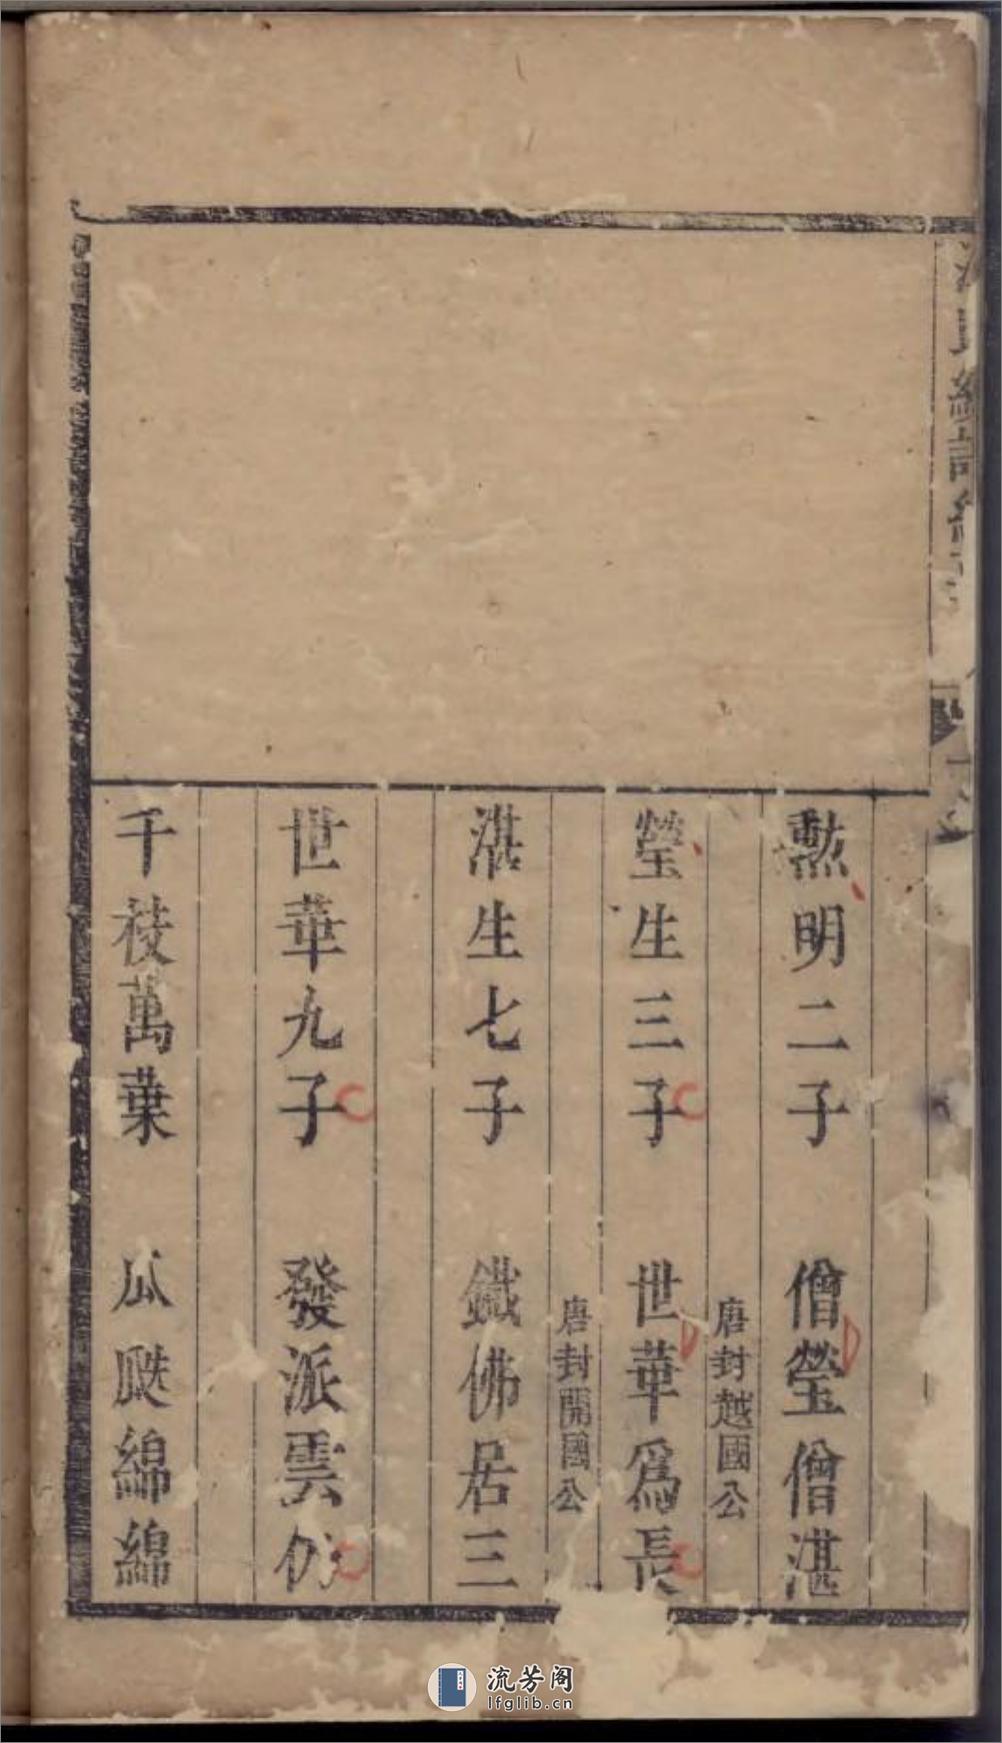 勲明二子　僧瑩僧湛
唐封越國公
瑩生三子　世華爲長
唐封開國公
湛生七子　鐵佛居三
世華九子　發派雲仍
千枝萬葉　瓜瓞綿綿
流芳阁
lfglib.cn